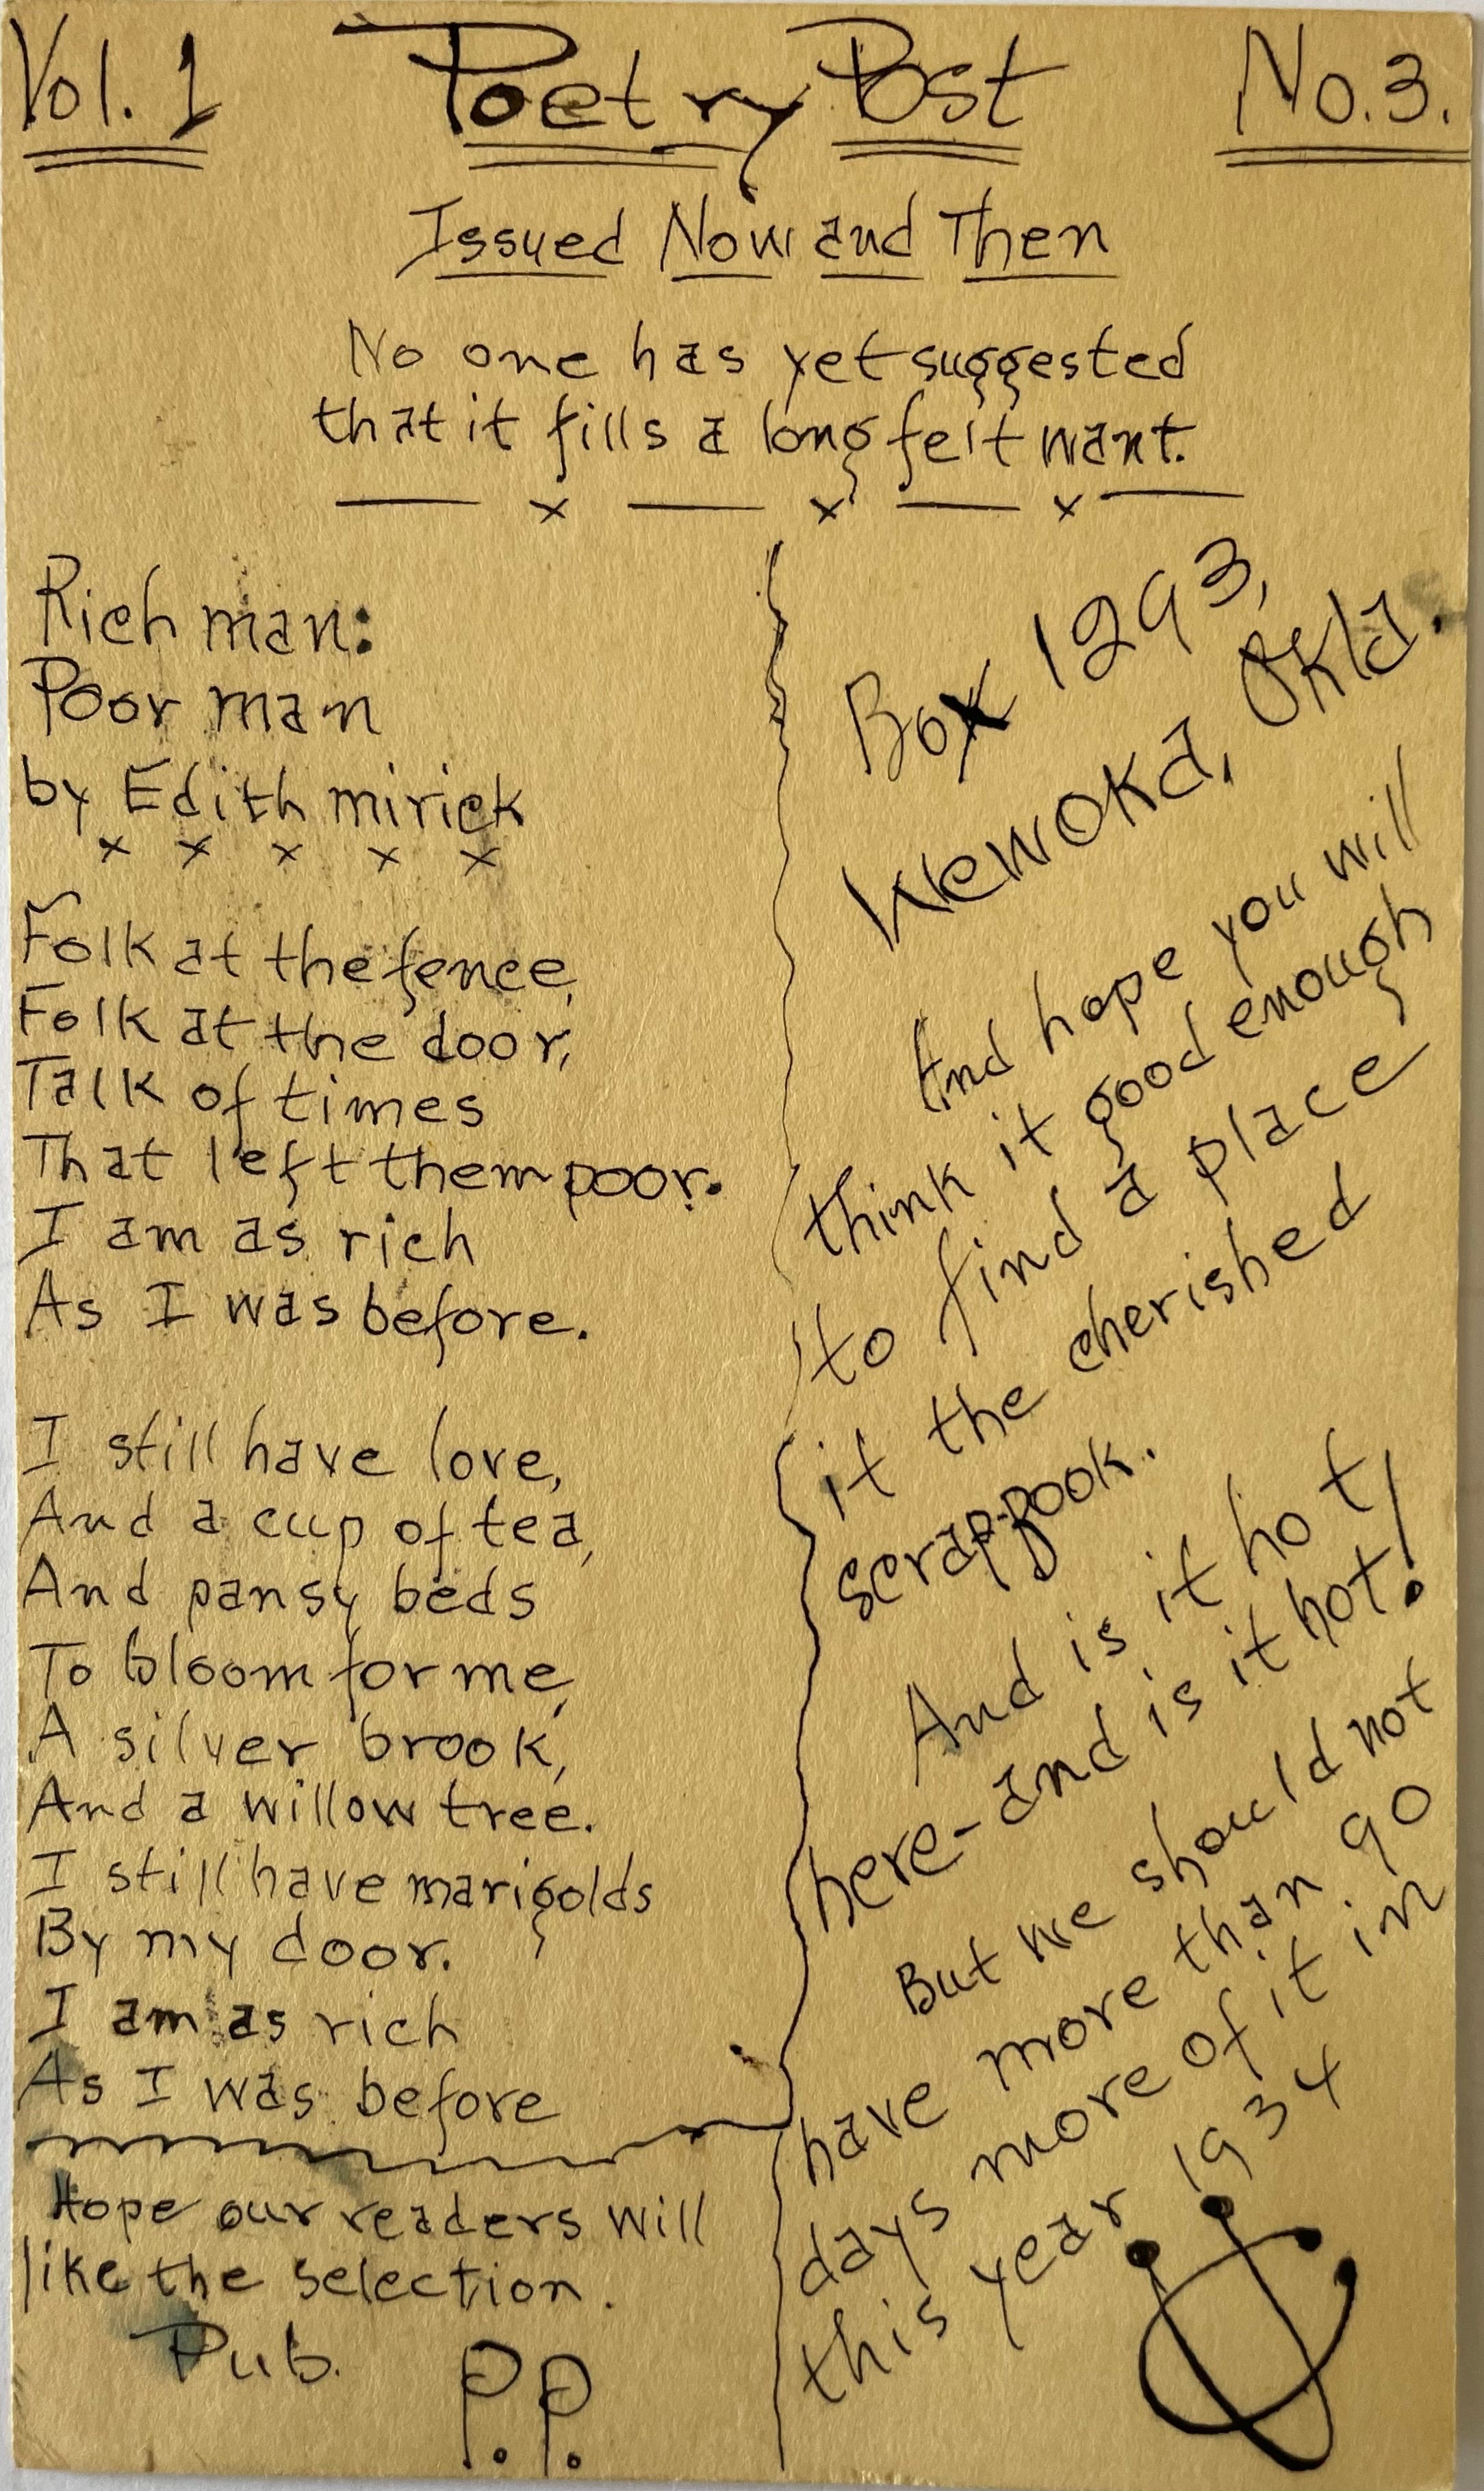 Vol. 1 Poetry Post No. 3.
Issued Now and Then
No one has yet suggested
that it fills a long felt want.
— x — x — x —
Rich man:
Poor man
by Edith mirick
x x x x x
Folk at the fence,
Folk at the door,
Talk of times
That left them poor.
I am as rich
As I was before.
I still have love,
And a cup of tea,
And pansy beds
To bloom for me,
A silver brook,
And a willow tree.
I still have marigolds
By my door.
I am as rich
As I was before
Hope our readers will
like the selection.
Pub. P.P.
Box 1293,
Wewoka, Okla.
And hope you will
think it good enough
to find a place
it the cherished
scrap-book.
And is it hot
here-and is it hot!
But we should not
have more than 90
days more of it in
this year 1934